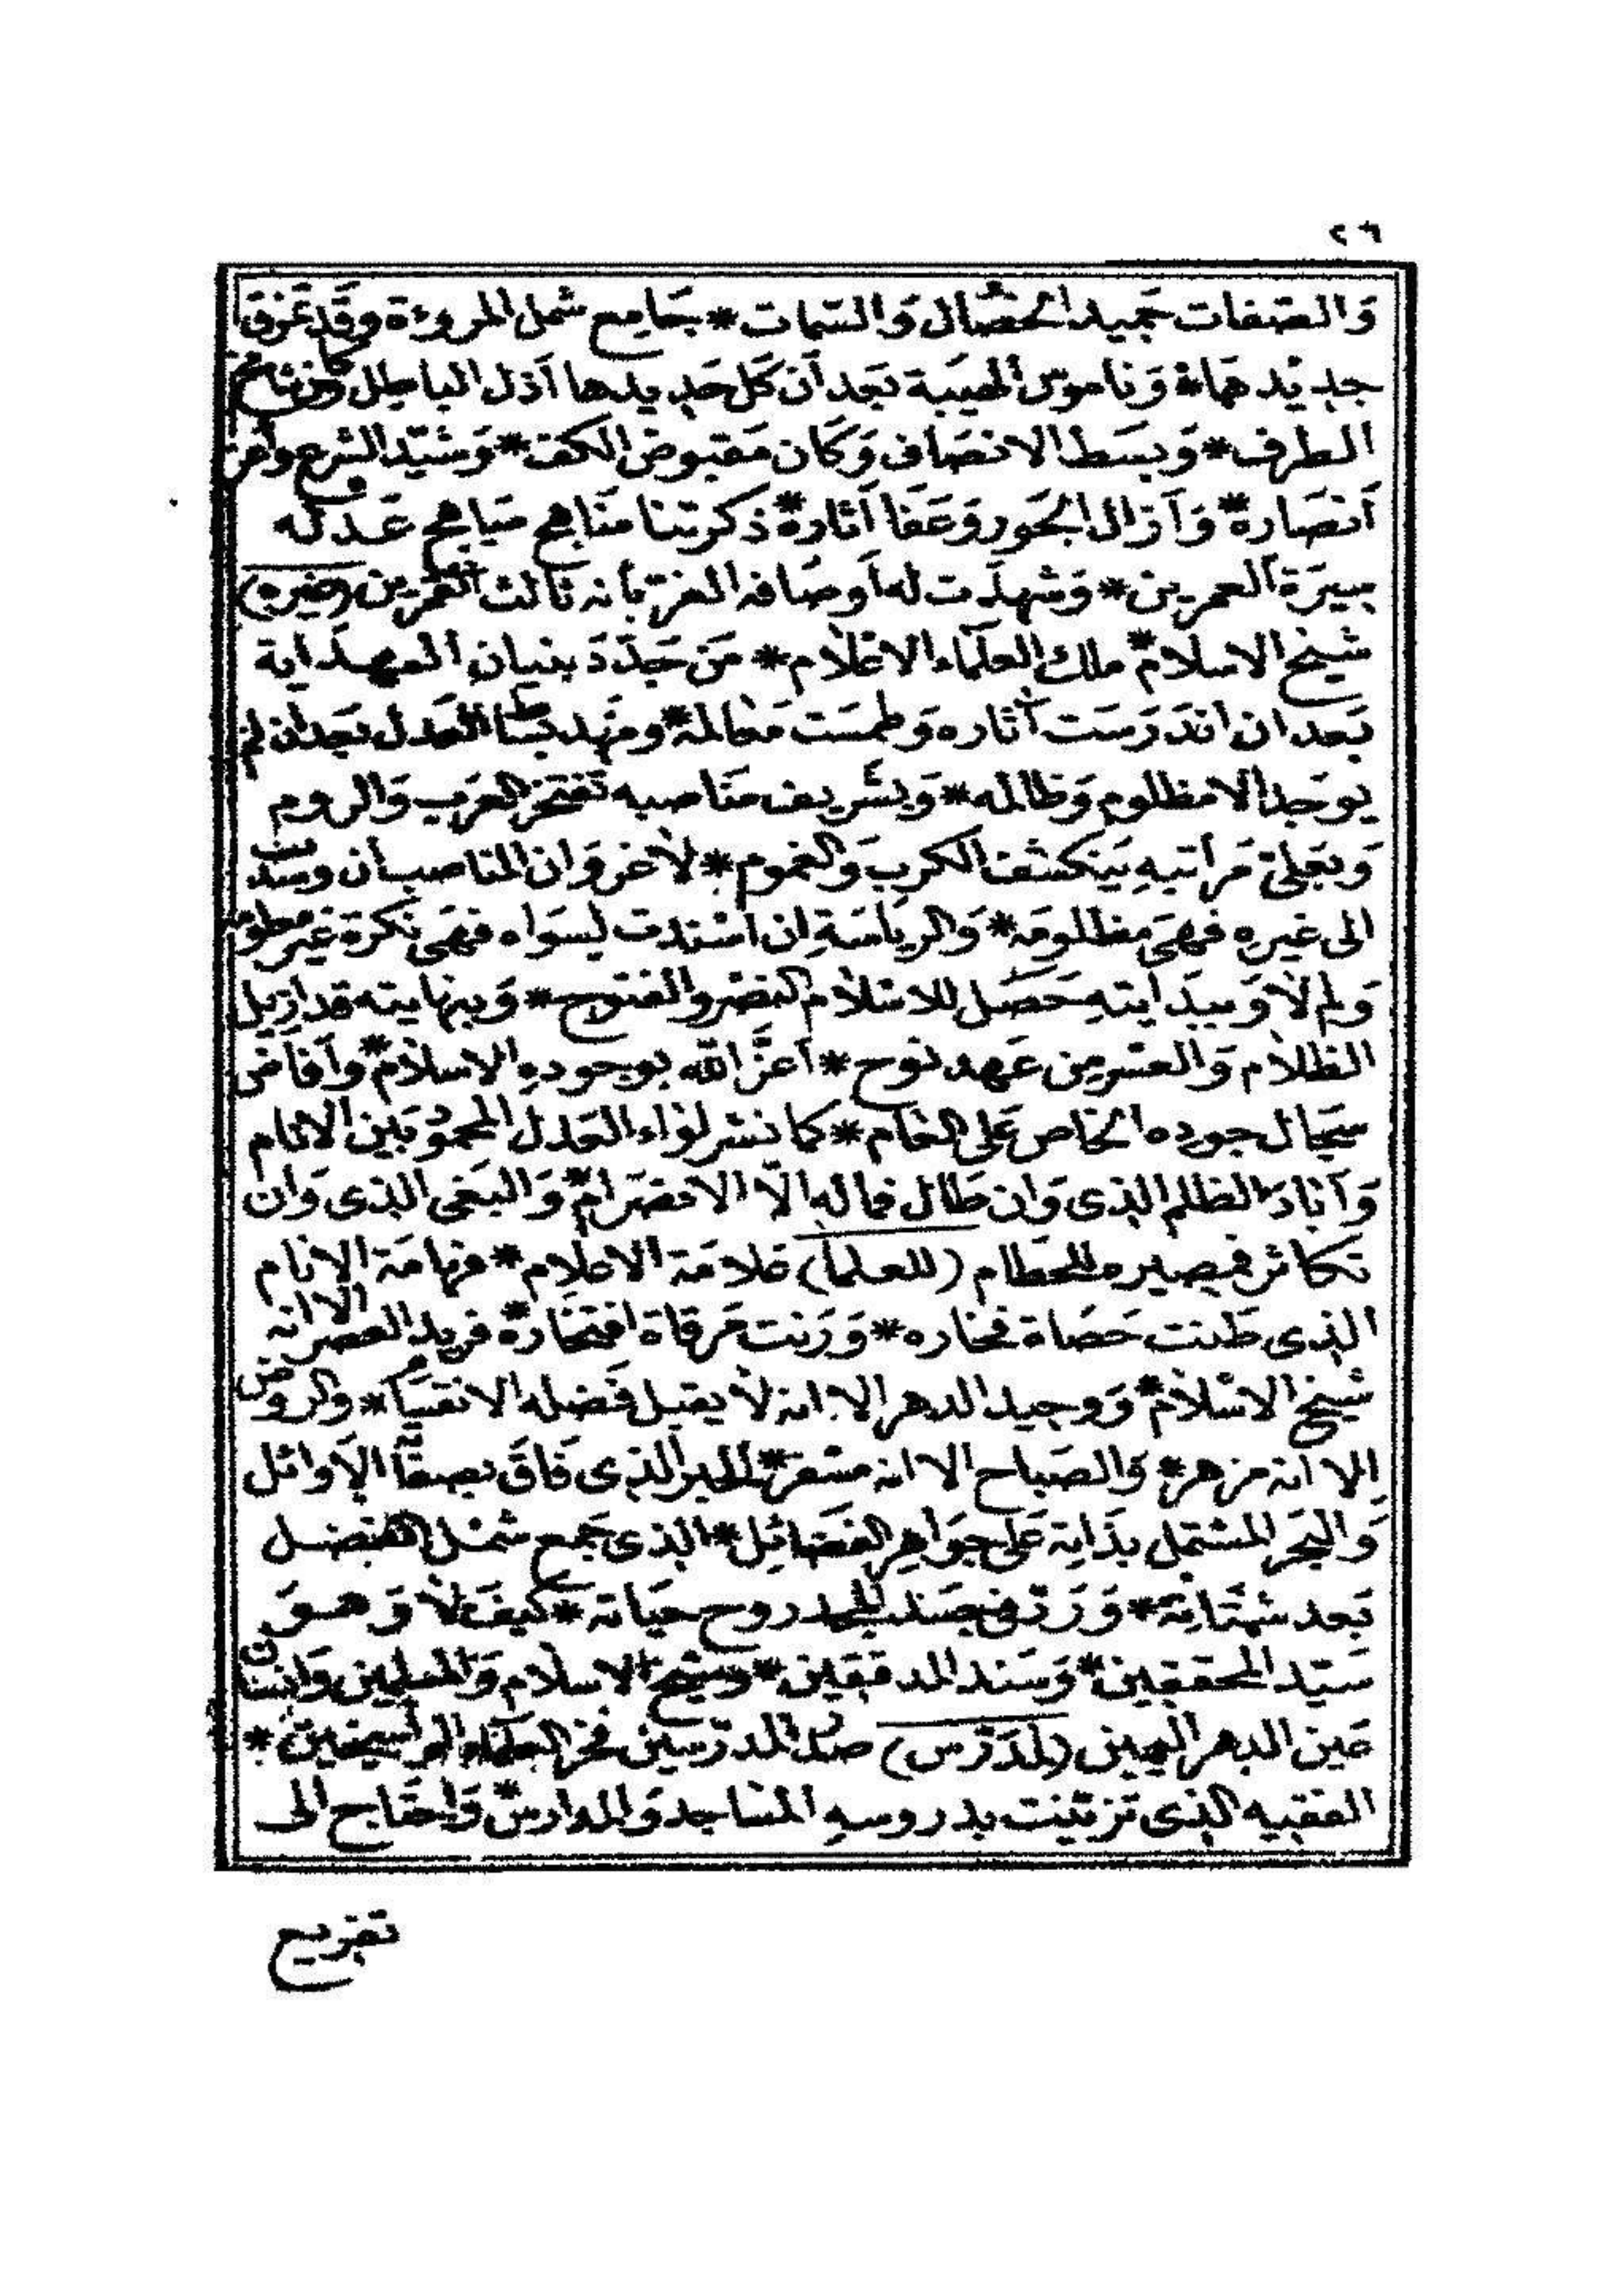 ٢٦
وَالصفات جميد الخصَال وَالسّمات * جَامِع شمل المروءة وقَد تمزق
جديدهَا * وَناموسُ الهيبَة بَعد اَن كَل حَديدها اَذل الباطل وكان شامخ
الطرف * وَبسَط الانصَاف وَكَان مَقبوض الكف * وَشيّد الشرع وأعز
اَنصَاره * وَاَزال الجَور وَعَفا اَثاره * ذكرتنا مناهج مباهج عَدله
بسيرَة العمرين * وَشهدَت له اَوصَافه الغرّ بأنه ثالث القمرين (غيره)
شيخ الاسلام * ملك العلَمَاء الاعْلام * مَن جَدّدَ بنيان الهدَاية
بَعد ان اندَرسَت آثاره وَطمسَت مَعَالمه * ومَهد بسَاط العَدل بَعد ان لم
يوجَد الا مظلوم وَظالمه * وَبشريف مَناصبه تفتخر العَرَب وَالروم
وَبعَلىّ مَراتبهِ يَنكشف الكرب وَالغموم * لاغروَ ان المناصب أن وسدت
الى غيرهِ فهَى مظلومَه * وَالرياسَة اِن اسْندت لسَواه فهَى نكرة غير معلومه
وَلم لا وَببدَايتهِ حَصَل للاسْلام النصْر والفتوح * وَبنهايته قد ازيل
الظلام وَالعسْر من عَهد نوح * اَعَزَّ الله بوجودهِ الاسْلام * وَاَفاض
سجَال جوده الخاص عَلى العَام * كما نشر لوَاء العَدل المحمود بَين الانام
وَاَبادَ الظلم الذى وَان طَال فماله الاّ الانصرَام * وَالبَغى الذى وَان
تكاثر فمصيره للحطام (للعلما) عَلامَة الاعلام * فهامَة الانام
الذى طنت حَصَاة فخاره * وَرَنت مَرقاة افتخاره * فريد العصر الا انه
شيخ الاسْلام * وَوحيد الدهر الا انه لا يقبل فَضله الانقسَام * والروض
الا انه مزهر * وَالصَباح الا انه مسْفر * الحبر الذى فَاقَ بصفاته الاَوائل
وَالبَحر المشتمل بذَاته عَلى جوَاهِر الفضَائل * الذى جَمع شمْل الفضل
بَعد شتَاته * وَرَدّ فى جسَد المجد روح حيَاته * كيفَ لاَ وَهوَ
سَيّد المحققين * وَسَند المدققين * وشيخ الاسلام وَالمسلمين وَانسَان
عَين الدهر اليمين (لمدَرّس) صدْر المدرّسين فخر العلَمَاء الراسخين *
الفقيه الذى تزيّنت بدروسهِ المسَاجد وَالمدارس * وَاحتَاج الى
تفريع